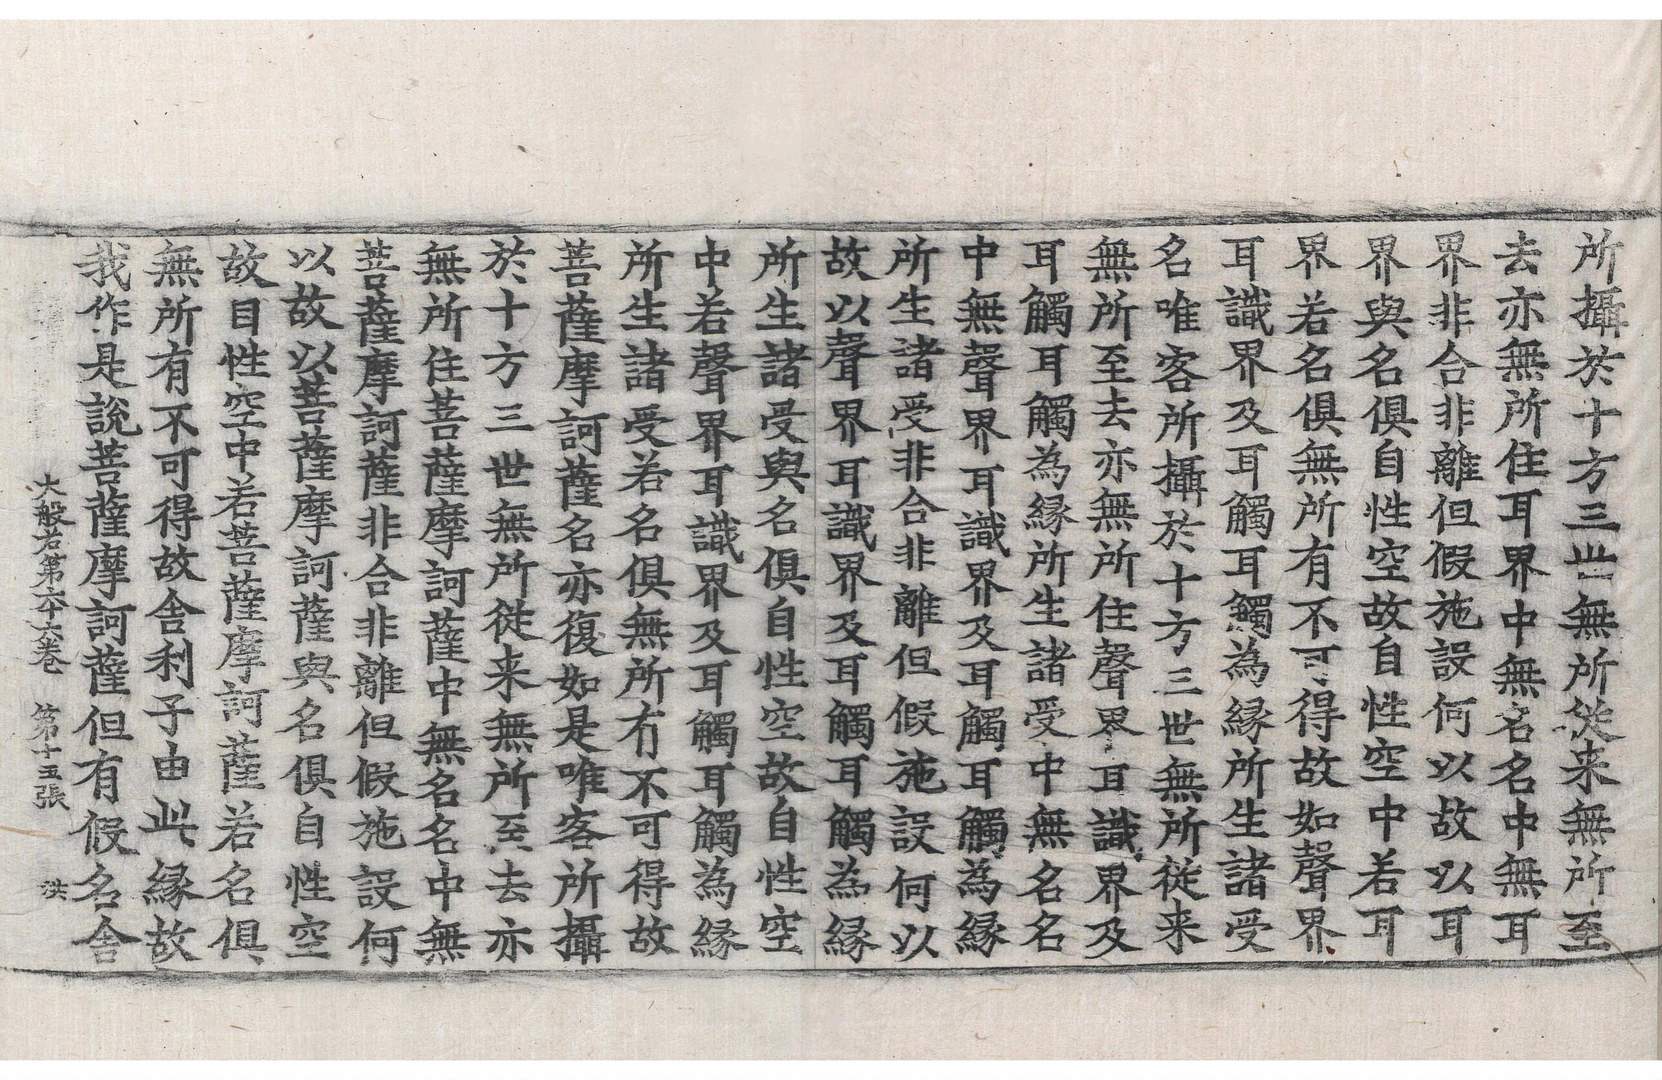 所攝於十方三世無所從来無所至
去亦無所住耳界中無名名中無耳
界非合非離但假施設何以故以耳
界與名俱自性空故自性空中若耳
界若名俱無所有不可得故如聲界
耳識界及耳觸耳觸為縁所生諸受
名唯客所攝於十方三世無所從来
無所至去亦無所住聲界耳識界及
耳觸耳觸為縁所生諸受中無名名
中無聲界耳識界及耳觸耳觸為縁
所生諸受非合非離但假施設何以
故以聲界耳識界及耳觸耳觸為縁
所生諸受與名俱自性空故自性空
中若聲界耳識界及耳觸耳觸為縁
所生諸受若名俱無所有不可得故
菩薩摩訶薩名亦復如是唯客所攝
於十方三世無所從来無所至去亦
無所住菩薩摩訶薩中無名名中無
菩薩摩訶薩非合非離但假施設何
以故以菩薩摩訶薩與名俱自性空
故自性空中若菩薩摩訶薩若名俱
無所有不可得故舍利子由此縁故
我作是說菩薩摩訶薩但有假名舍
大般若第六十六卷 第十五張 洪